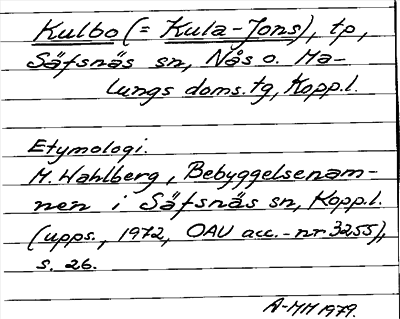 Kulbo (= Kula-Jons), tp,
Säfsnäs sn, Nås o. Ma-
lungs doms. tg, Kopp.l.
Etymologi.
M. Wahlberg, Bebyggelsenam-
nen i Säfsnäs sn, Kopp.l.
(upps., 1972, OAU acc.-nr 3255),
s. 26.
A-MM 1979.